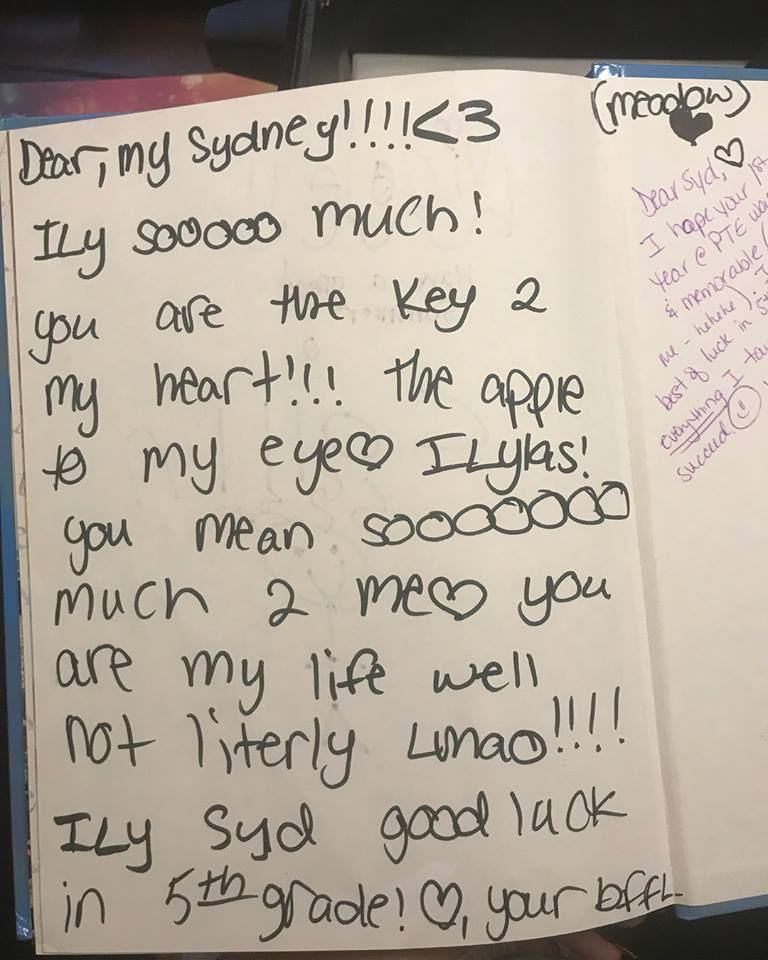 Dear, my Sydney!!!!<3
ILy sooooo much!
you are the key 2
my heart!!! the apple
to my eye♡ ILylas!
you mean soooooooo
much 2 me♡ you
are my life well
not literly Lmao!!!!
ILy Syd good luck
in 5th grade! ♡, your bffL
(meadow)
♥
Dear Syd, ♡
I hope your 1st
year @ PTE was
& memorable (
me - hehehe
best of luck in 5th
everything I
succeed